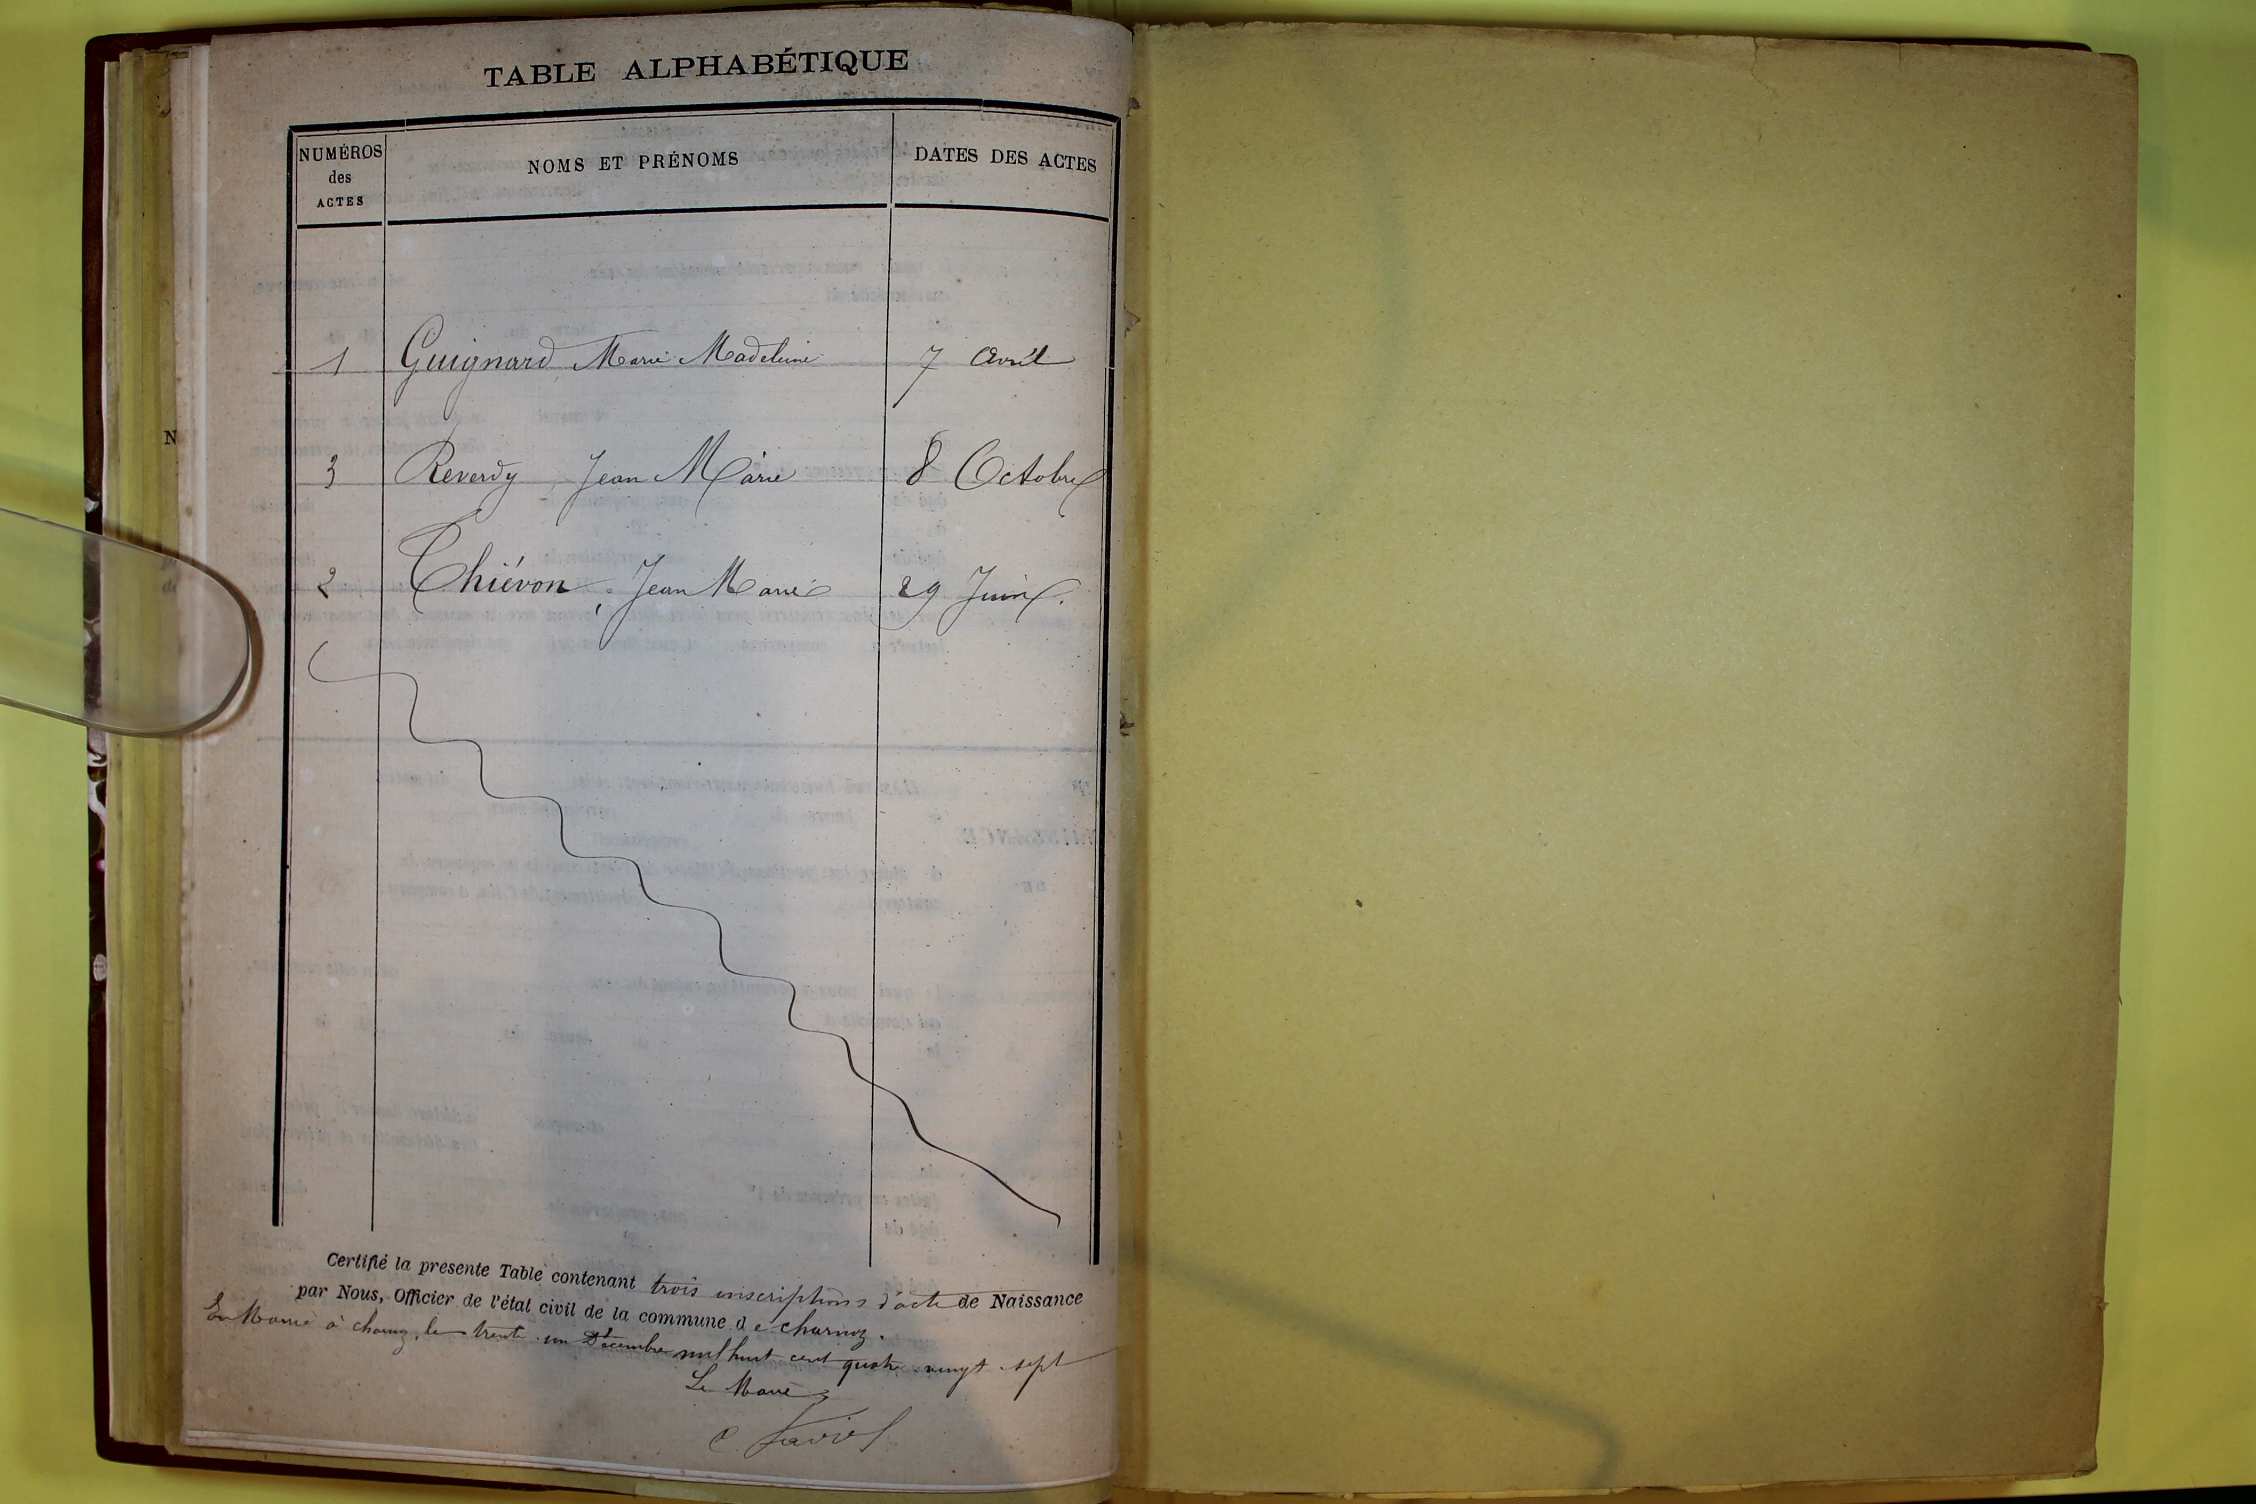 TABLE ALPHABÉTIQUE
NUMÉROS des ACTES NOMS ET PRÉNOMS DATES DES ACTES
1 Guignard Marie Madeleine 7 Avril
3 Reverdy Jean Marie 8 Octobre
2 Thiévon, Jean Marie 29 Juin.
Certifié la presente Table contenant trois inscriptions d'acte de Naissance
par Nous, Officier de l'état civil de la commune d e Charnoz.
En Mairie à Charnoz, le trente un Décembre mil huit cent quatre vingt sept
Le Maire
N